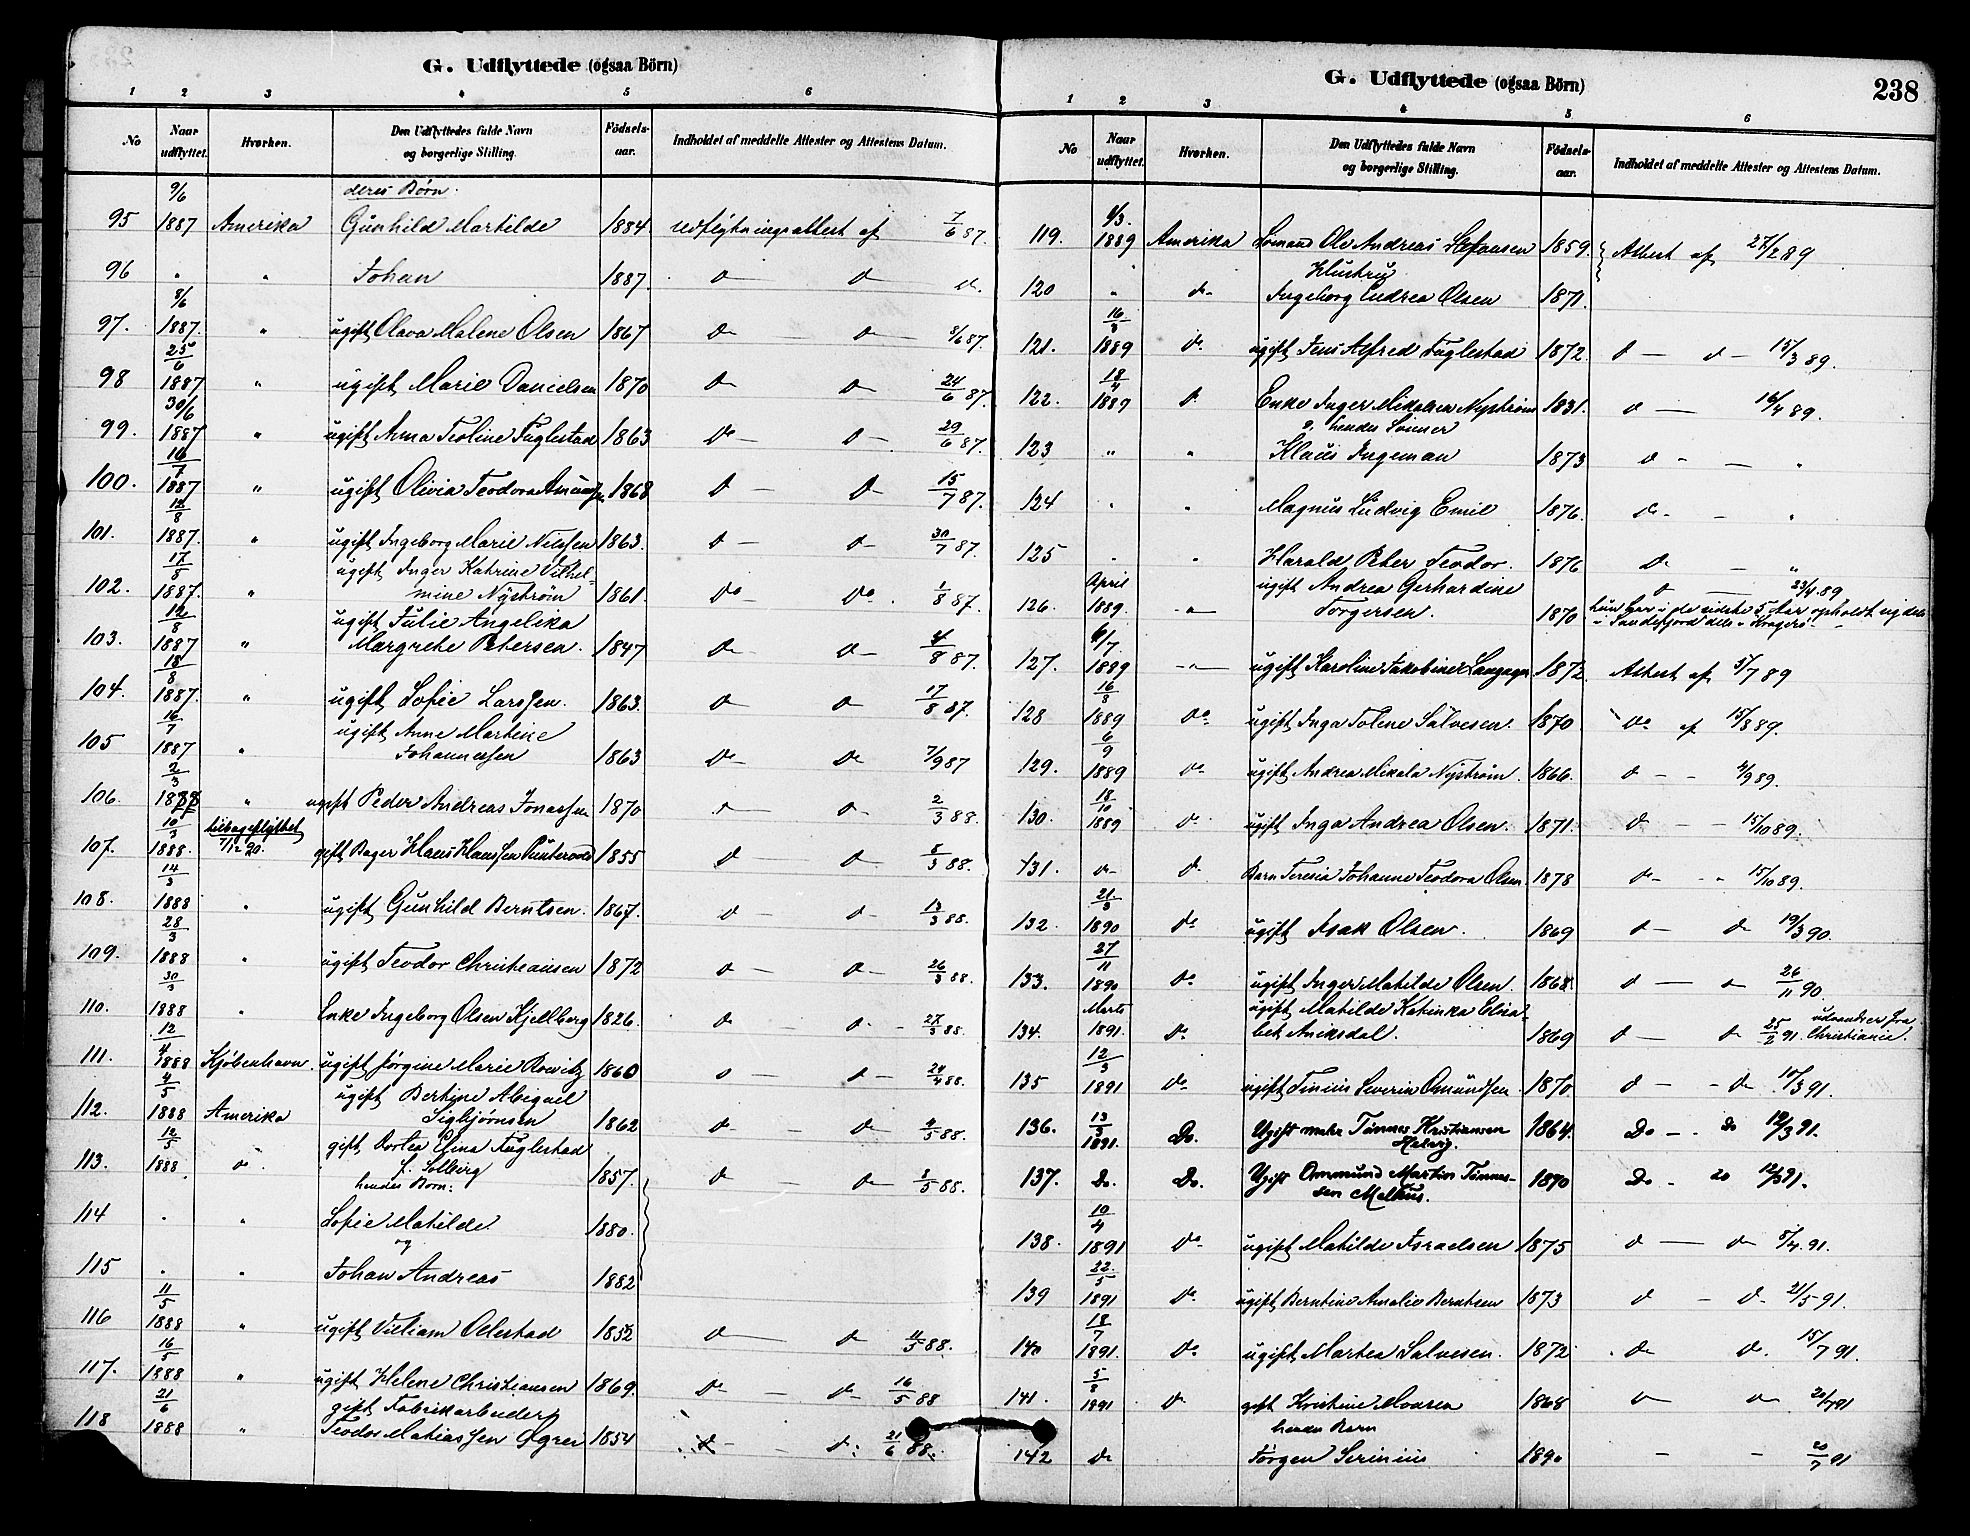 G. Udflyttede (ogsaa Börn)
1 2 3 4 5 6
No Naar udflyttet. Hvorhen. Den Udflyttedes fulde Navn og borgerlige Stilling. Födsels-aar. Indholdet af meddelte Attester og Attestens Datum.
deres Børn.
95 9/6 1887 Amerika Gunhild Martilde 1884 udflytningsattest af 7/6 87.
96 " " Johan 1887. d d d.
97. 8/6 1887. " ugift Olava Malene Olsen 1867 d d 8/6 87.
98 25/6 1887 " ugift Marie Danielsen 1870 d d 24/6 87.
99. 30/6 1887 " ugift Anna Teoline Fuglestad 1863 do — d — 29/6 87.
100. 16/7 1887 " ugift Olivia Teodora 1868 d — d — 15/7 87.
101. 12/8 1887. " ugift Ingeborg Marie Nilssen 1863. d — d — 30/7 87.
102. 17/8 1887. " ugift Inger Katrine Vilhel-
mine Nystrøm 1861. do — do. 1/8 87.
103. 12/8 1887 " ugift Julie Angelika
Margrethe Petersen. 1847 d — d — 4/8 87.
104. 18/8 1887. " ugift Sofie Larssen. 1863. d d 17/8 87.
105 16/7 1887 " ugift Anne Martine
Johannessen 1863 do — do 7/9 87
106. 2/3 1888 " ugift Peder Andreas Jonassen 1870 d — d — 2/3 88.
107. 10/3 1888. tilbageflyttet 7/12 90. gift Bager Klaus Klaussen 1855 d — d 8/3 88.
108. 14/3 1888 " ugift Gunhild Berntsen. 1867. d — d — 13/3 88.
109. 28/3 1888 " ugift Teodor Christiansen 1872 d — d — 26/3 88.
110. 30/3 1888 " Enke Ingeborg Olsen Kjellberg 1826. d — d. — 27/3 88.
111. 12/4 1888 Kjøbenhavn. ugift Jørgine Marie 1860 d — d — 20/4 88.
112. 4/5 1888 Amerika ugift Bertine Abigail
Sigbjørnsen 1862 d — d — 4/5 88.
113. 12/5 1888 d. gift Dortea Elina Fuglestad
f. Solberg 1857. d — d — 8/5 88.
hendes Børn:
114 . " Sofie Matilde 1880.
og
115 . " Johan Andreas 1882
116 11/5 1888 " ugift Villiam Oelestad 1852 d — d 11/5 88.
117. 16/5 1888 " ugift Helene Christiansen 1869. d — d — 16/5 88
118 21/6 1888 " gift Fabrikarbeider
Teodor Matiassen 1854 d — d. 21/6 88.
G. Udflyttede (ogsaa Börn) 238
1 2 3 4 5 6
No Naar udflyttet. Hvorhen. Den Udflyttedes fulde Navn og borgerlige Stilling. Födsels-aar. Indholdet af meddelte Attester og Attestens Datum.
119. 1/3. 1889 Amerika Sømand Ole Andreas Stefansen 1859. Attest af 27/2 89
Hustru
120 " d — Ingeborg Andrea Olsen 1871.
121. 16/3 1889 d. ugift Jens Alfred Fuglestad 1872. d — d — 15/3 89.
122. 18/4 1889 d Enke Inger Mikalsen Nystrøm 1831. d — 16/4 89.
o. hendes Sønner
123 " " Klaus Ingeman 1873 d — — "
124 " " Magnus Ludvig Emil 1876. d — — "
125 " " Harald Peter Teodor. 1876 d — "
126. April 1889. — " — ugift Andrea Gerhardine
Torgersen. 1870 d — 23/4 89
hun har i de sidste 5 Aar opholdt sig dels
i Sandefjord dels i Kragerø.
127. 6/7 1889 — " — ugift Karoline Jakobine 1872. Attest af 5/7 89
128 16/8 1889 do ugift Inga Tolene Salvesen. 1870 do af 15/8 89.
129. 6/9 1889 do ugift Andrea Mikala Nystrøm. 1866. d — — 4/9 89.
130. 18/10 1889 d. ugift Inga Andrea Olsen. 1871. d — — 15/10 89.
131. d — d. Barn Teresia Johanne Teodora Olsen 1878 d — — " 15/10 89.
132. 21/3 1890 do ugift Isak Olsen. 1869 d — d 19/3 90.
133. 27/11 1890 do. ugift Inger Matilde Olsen. 1868. d — d 26/11 90.
134. Marts 1891. do. ugift Matilde Katinka Elisa-
bet Aniksdal. 1869 d — d 25/2 91. udvandrer fra Christiania.
135 12/3 1891 do ugift Tinius Severin Omundsen. 1870. d — — d 10/3 91.
136. 13/3 1891. Do. Ugift Tønnes Kristiansen 1864. Do — . do 12/3 91.
137. Do. Do. Ugift Ommund Martin Tønnes-
sen Melhus. 1870 Do — . 12/3 91.
138. 10/4 1891 do ugift Matilde Israelsen 1875 d — d 8/4. 91.
139 22/5 1891 do. ugift Berntine Amalie Berntsen 1873 d — d 21/5 91.
140 18/7 1891. do. ugift Martea Salvesen. 1872 do do. 15/7 91.
141. 5/8 1891 d gift Kristine 1868 d — d 20/7 91
hendes Barn
142 do Jørgen Serinius 1890 — — 20/7 91